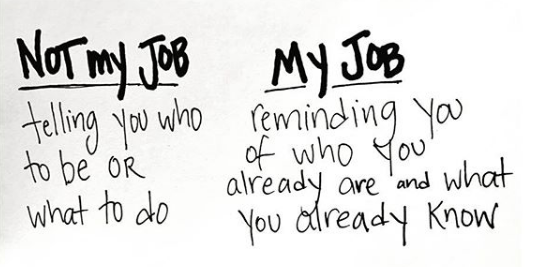 NOT my JOB
telling you who
to be OR
what to do
My JOB
reminding you
of who you
already are and what
you already know